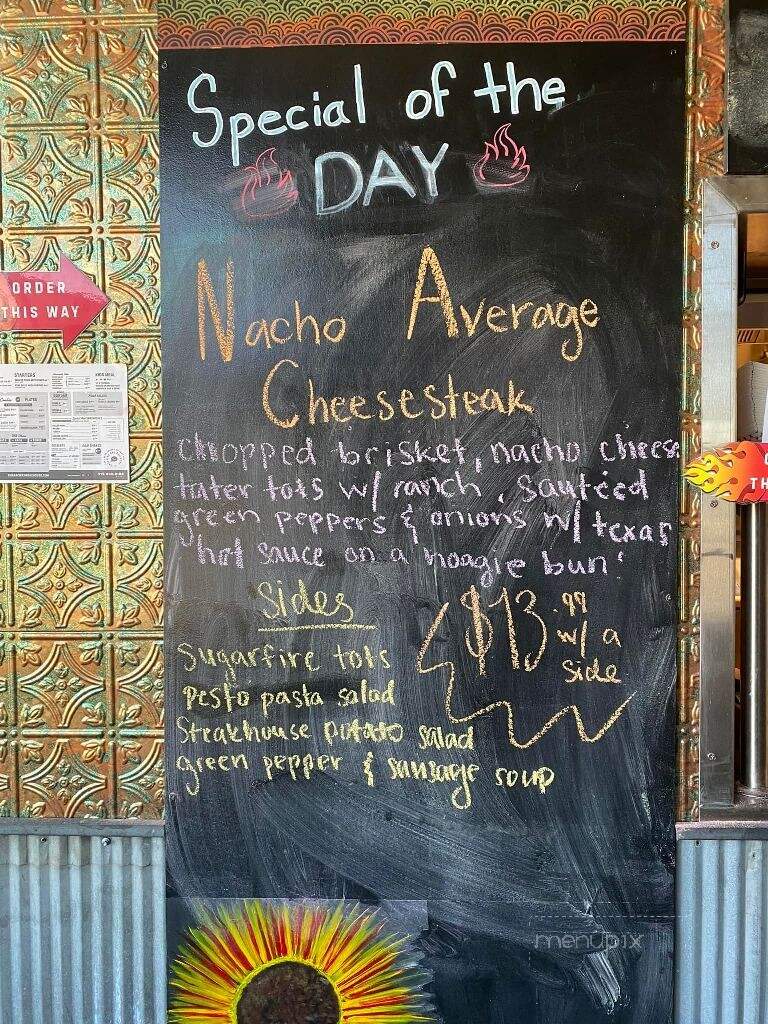 Special of the
DAY
Nacho Average
Cheesesteak
chopped brisket, nacho cheese
tater tots w/ ranch, sautéed
green peppers & onions w/ texas
hot sauce on a hoagie bun!
Sides
$13.99
w/ a
side
Sugarfire tots
pesto pasta salad
Steakhouse potato salad
green pepper & sausage soup
ORDER
THIS WAY
STARTERS
KIDS MEAL
PLATES
TH
menupix